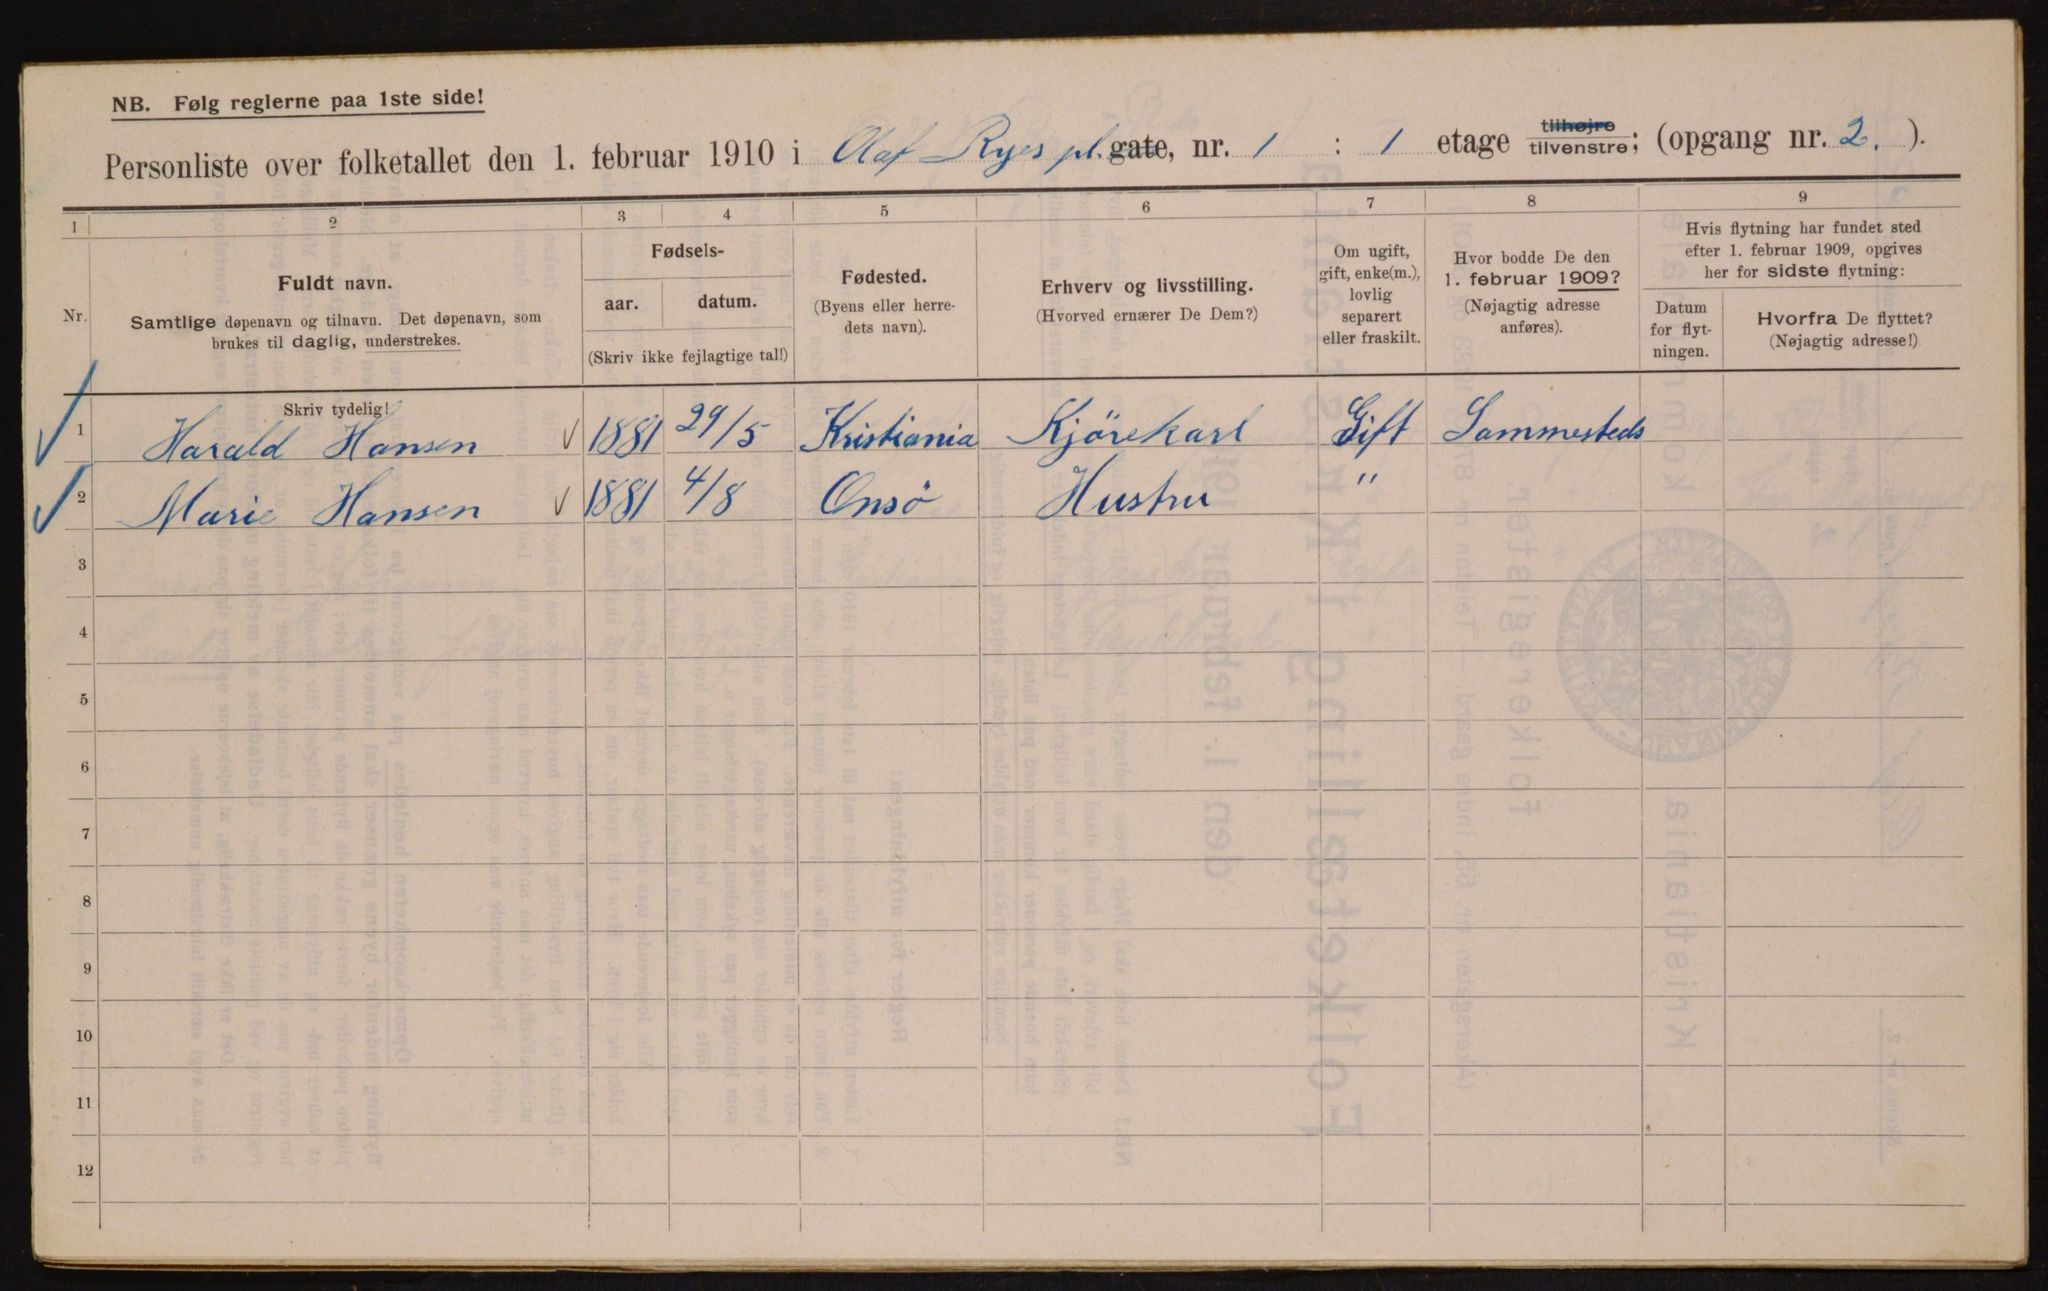 NB. Følg reglerne paa 1ste side!
Personliste over folketallet den 1. februar 1910 i Olaf Ryes pl. gate, nr. 1 : 1 etage tilhøjre tilvenstre; (opgang nr. 2. ).
1 2 3 4 5 6 7 8 9
Nr.
Fuldt navn.
Samtlige døpenavn og tilnavn. Det døpenavn, som
brukes til daglig, understrekes.
Fødsels-
aar. datum.
(Skriv ikke fejlagtige tal!)
Fødested.
(Byens eller herre-
dets navn).
Erhverv og livsstilling.
(Hvorved ernærer De Dem?)
Om ugift,
gift, enke(m.),
lovlig
separert
eller fraskilt.
Hvor bodde De den
1. februar 1909?
(Nøjagtig adresse
anføres).
Hvis flytning har fundet sted
efter 1. februar 1909, opgives
her for sidste flytning:
Datum
for flyt-
ningen.
Hvorfra De flyttet?
(Nøjagtig adresse!)
Skriv tydelig!
1 Harald Hansen 1881 29/5 Kristiania Kjørekarl Gift Sammesteds
2 Marie Hansen 1881 4/8 Onsö Hustru "
3
4
5
6
7
8
9
10
11
12